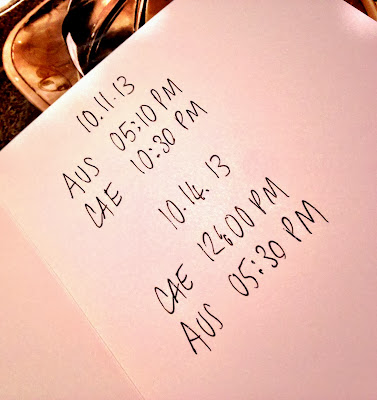 10.11.13
AUS 05:10 PM
CAE 10:30 PM
10.14.13
CAE 12:00 PM
AUS 05:30 PM